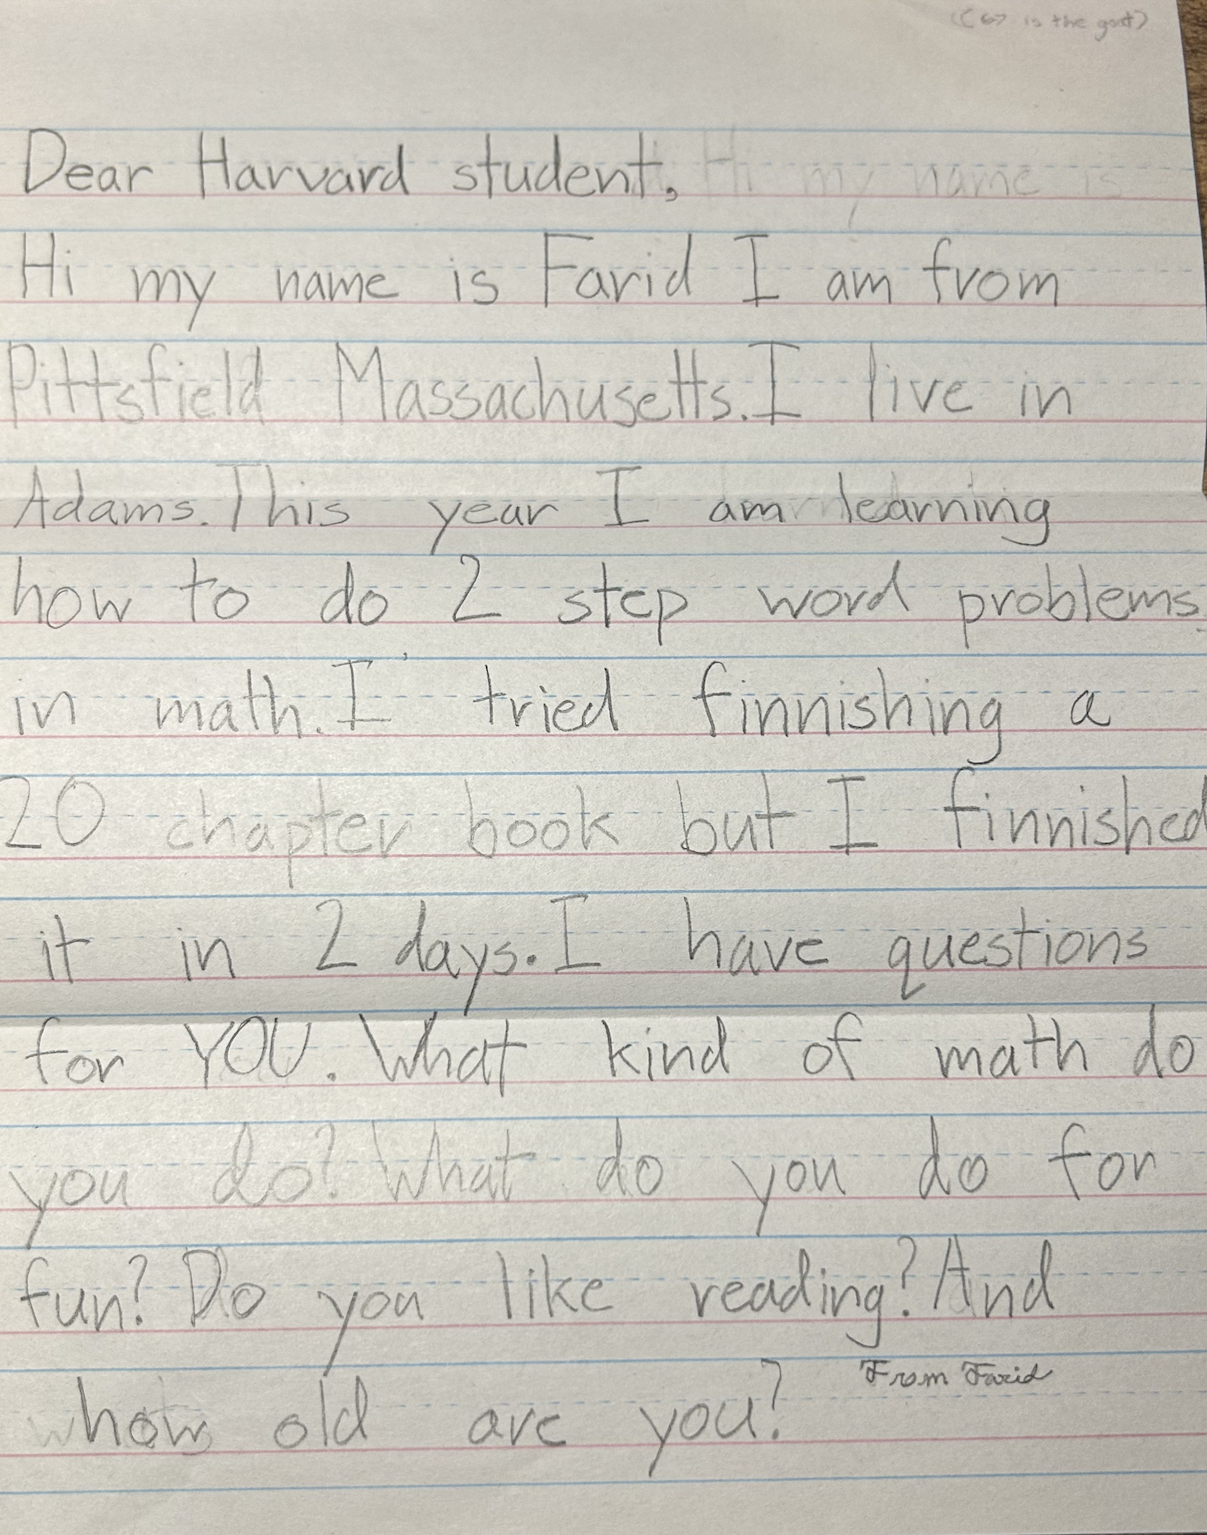 (67 is the goat)
Dear Harvard student, Hi my name is
Hi my name is Farid I am from
Pittsfield Massachusetts. I live in
Adams. This year I am learning
how to do 2 step word problems
in math. I tried finnishing a
20 chapter book but I finnished
it in 2 days. I have questions
for YOU. What kind of math do
you do? What do you do for
fun? Do you like reading? And
how old are you?
From Farid